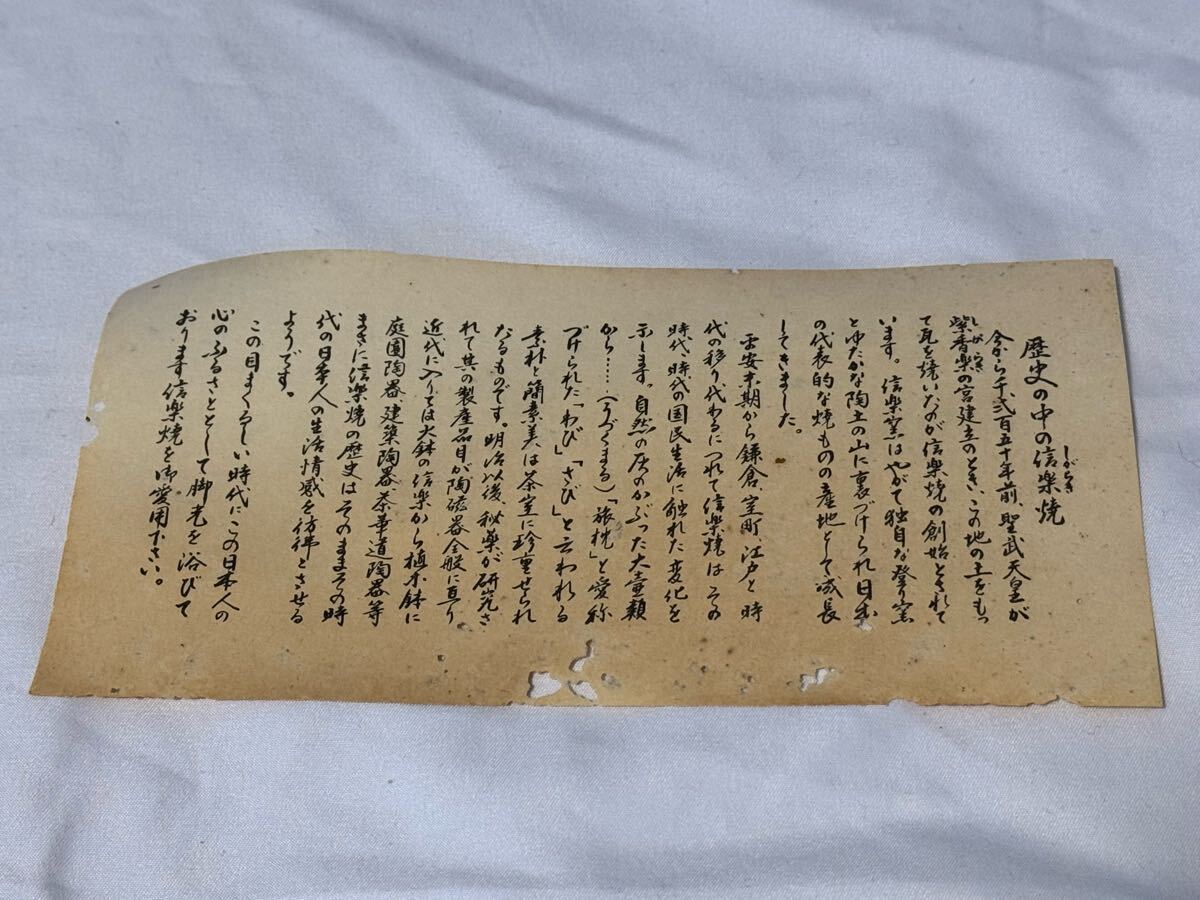 歴史の中の信楽焼
しがらき
今から千弐百五十年前、聖武天皇が
紫香楽の宮建立のとき、この地の土をもっ
しがらき
て瓦を焼いたのが信楽焼の創始とされて
います。信楽窯はやがて独自な登り窯
とゆたかな陶土の山に裏づけられ日本
の代表的な焼ものの産地として成長
してきました。
平安末期から鎌倉、室町、江戸と時
代の移り代わるにつれて信楽焼はその
時代、時代の国民生活に触れた変化を
示します。自然の灰のかぶった大壷類
から……(うづくまる)「旅枕」と愛称
づけられた「わび」「さび」と云われる
素朴と簡素美は茶室に珍重せられ
たるものです。明治以後、秘薬が研究さ
れて其の製産品目が陶磁器全般に亘り
近代に入りては火鉢の信楽から植木鉢に
庭園陶器、建築陶器、茶華道陶器等
まさに信楽焼の歴史はそのままその時
代の日本人の生活情感を彷彿とさせる
ようです。
この目まぐるしい時代にこの日本人の
心のふるさととして脚光を浴びて
おります信楽焼を御愛用下さい。